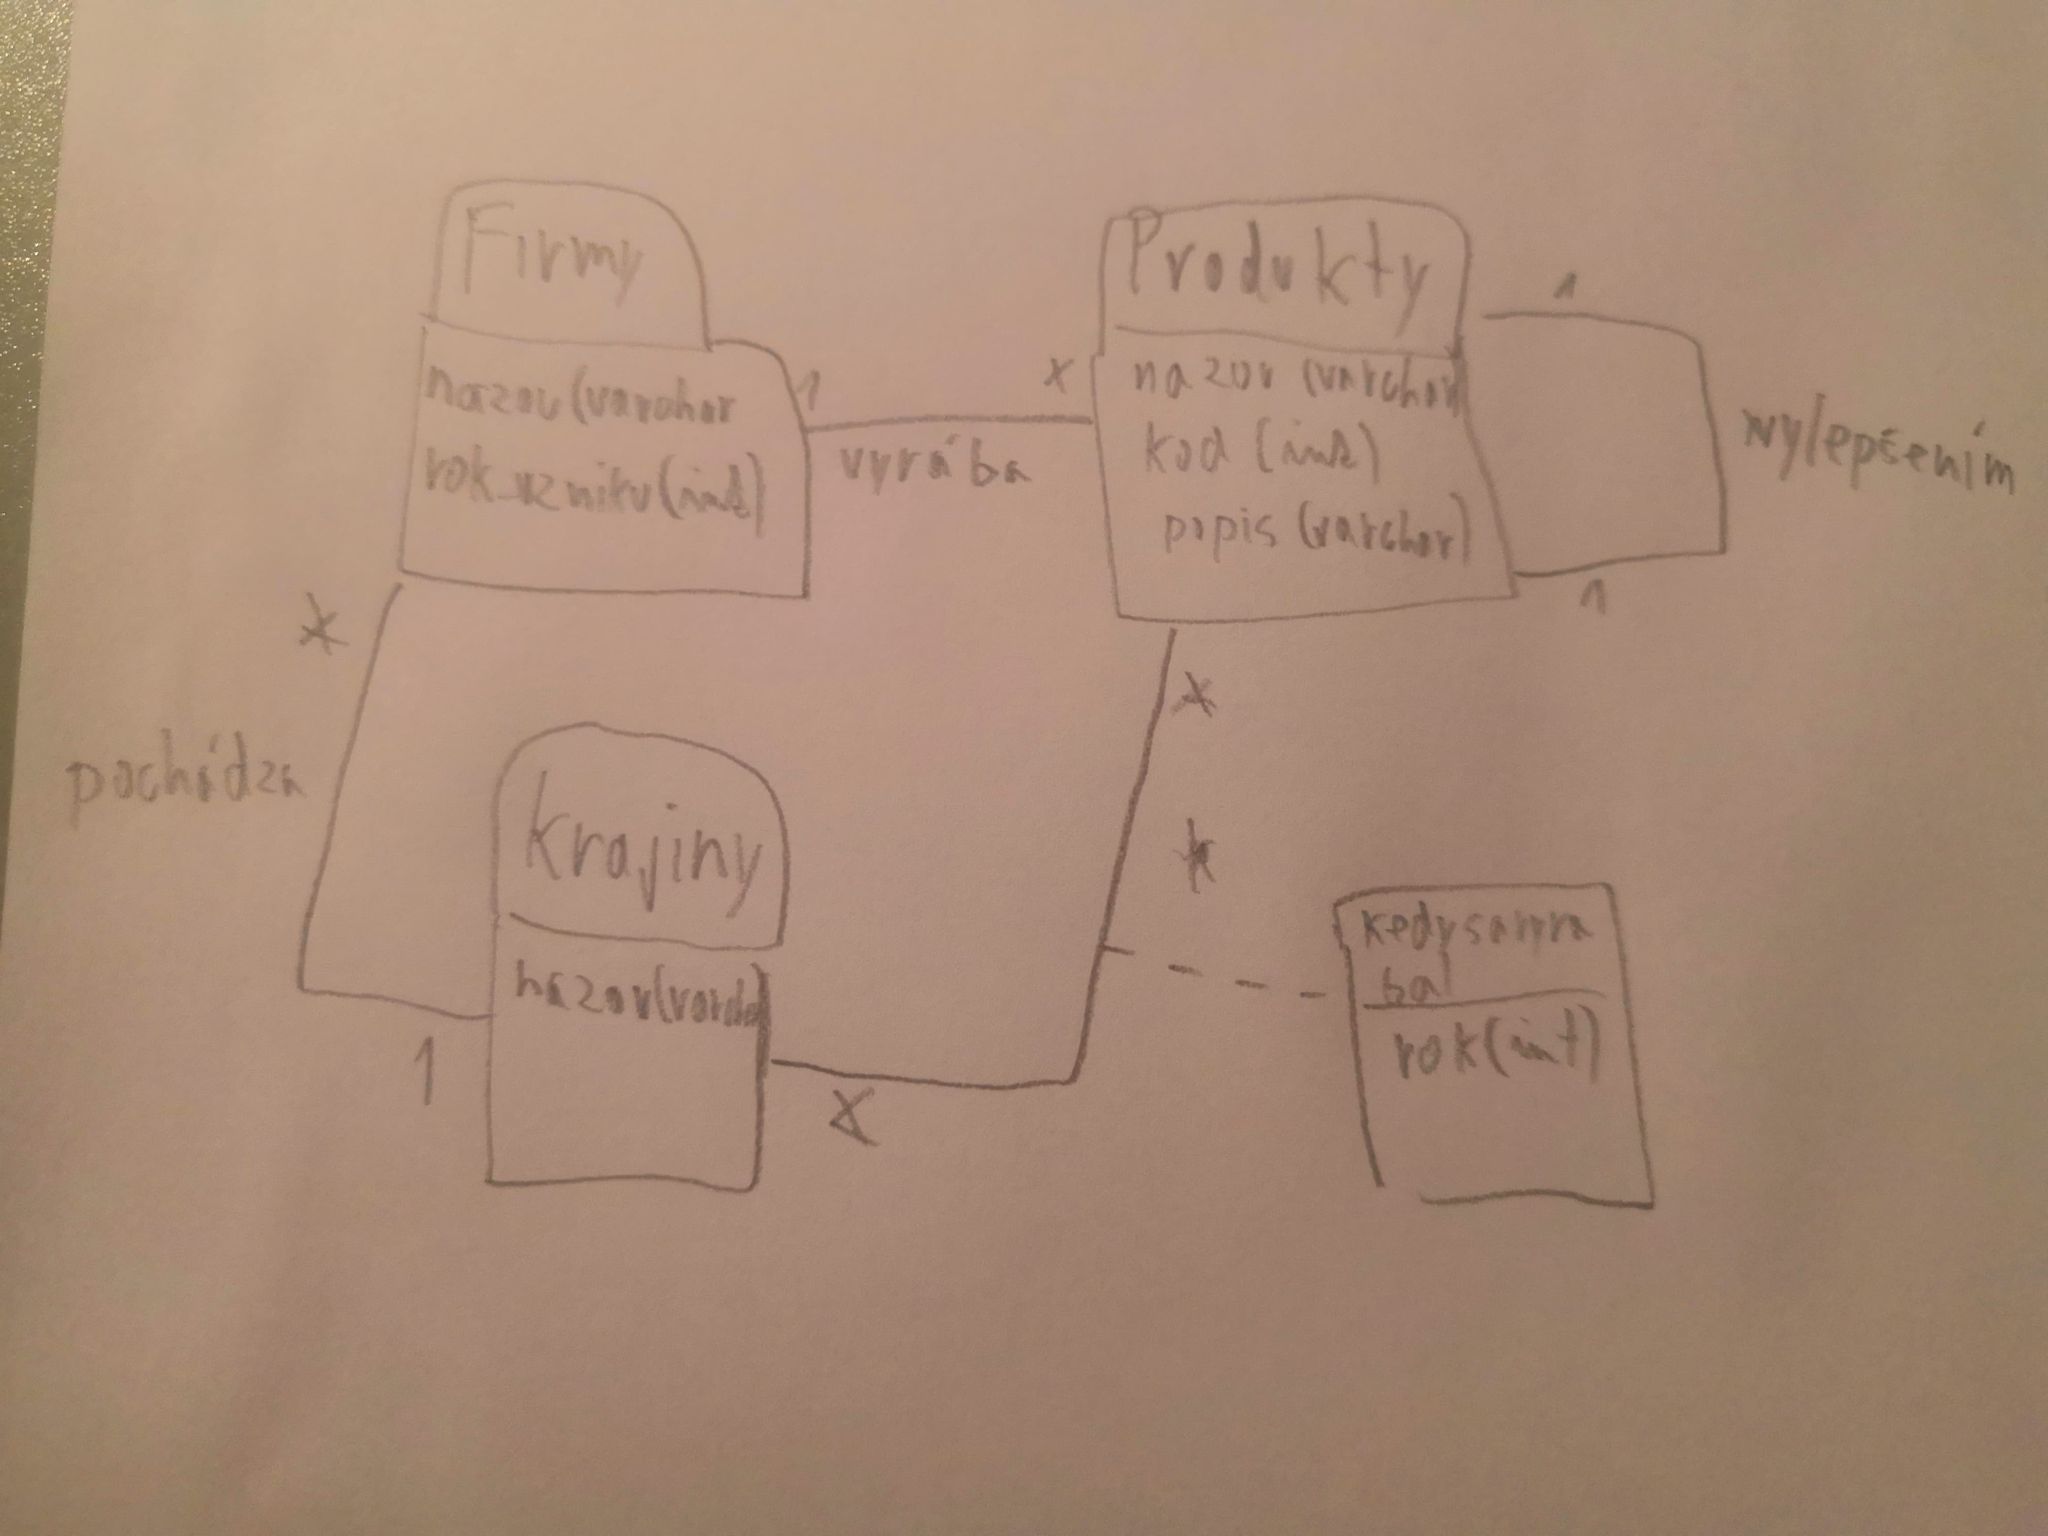 Firmy
nazov (varchar
rok_vzniku (int)
1
vyrába
*
Produkty
nazov (varchar)
kod (int)
popis (varchar)
1
vylepšením
1
*
pochádza
1
krajiny
nazov (varcha
*
*
*
kedysavyra
bal
rok (int)